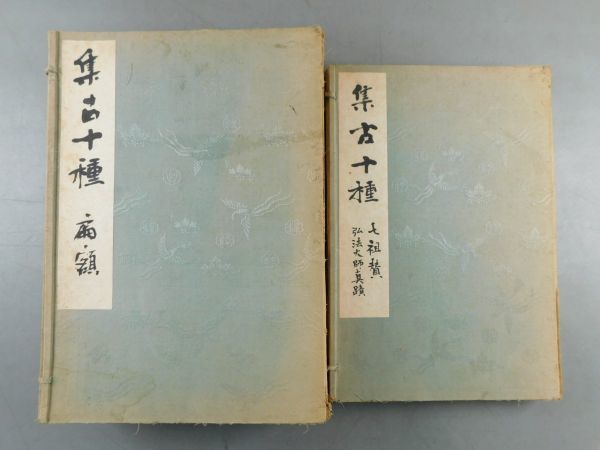 集古十種
扁額
集古十種
七祖賛
弘法大師真蹟